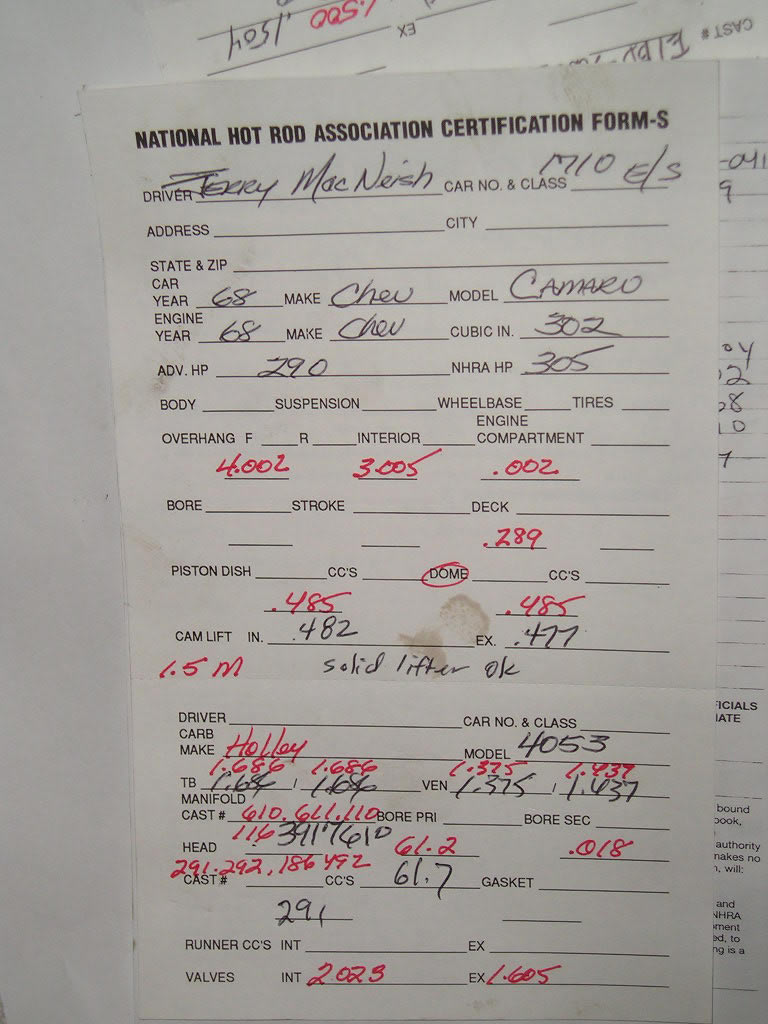 1.500 .1504
EX
CAST #
NATIONAL HOT ROD ASSOCIATION CERTIFICATION FORM-S
DRIVER Jerry MacNeish CAR NO. & CLASS 1710 E/S
ADDRESS CITY
STATE & ZIP
CAR
YEAR 68 MAKE Chev MODEL CAMARO
ENGINE
YEAR 68 MAKE Chev CUBIC IN. 302
ADV. HP 290 NHRA HP 305
BODY SUSPENSION WHEELBASE TIRES
OVERHANG F R INTERIOR ENGINE COMPARTMENT
4.002 3.005 .002
BORE STROKE DECK
.289
PISTON DISH CC'S DOME CC'S
.485 .485
CAM LIFT IN. .482 EX. .477
1.5 M solid lifter ok
DRIVER CAR NO. & CLASS
CARB
MAKE Holley MODEL 4053
1.686 1.686 1.375 1.437
TB 1.686 / 1.686 VEN 1.375 / 1.437
MANIFOLD
CAST # 610, 611, 110 BORE PRI BORE SEC
116 3917610 61.2 .018
HEAD
291, 292, 186 492
CAST # CC'S 61.7 GASKET
291
RUNNER CC'S INT EX
VALVES INT 2.023 EX 1.605
-041
9
04
2
28
10
7
bound
authority
makes no
, will:
and
NHRA
ed, to
ng is a